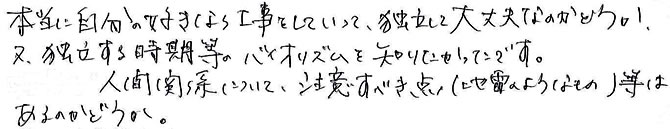 本当に自分の好きな工事をしていって、独立して大丈夫なのかどうか、
又、独立する時期等のバイオリズムを知りたかったです。
人間関係について、注意すべき点(地雷のようなもの)等は
あるのかどうか。